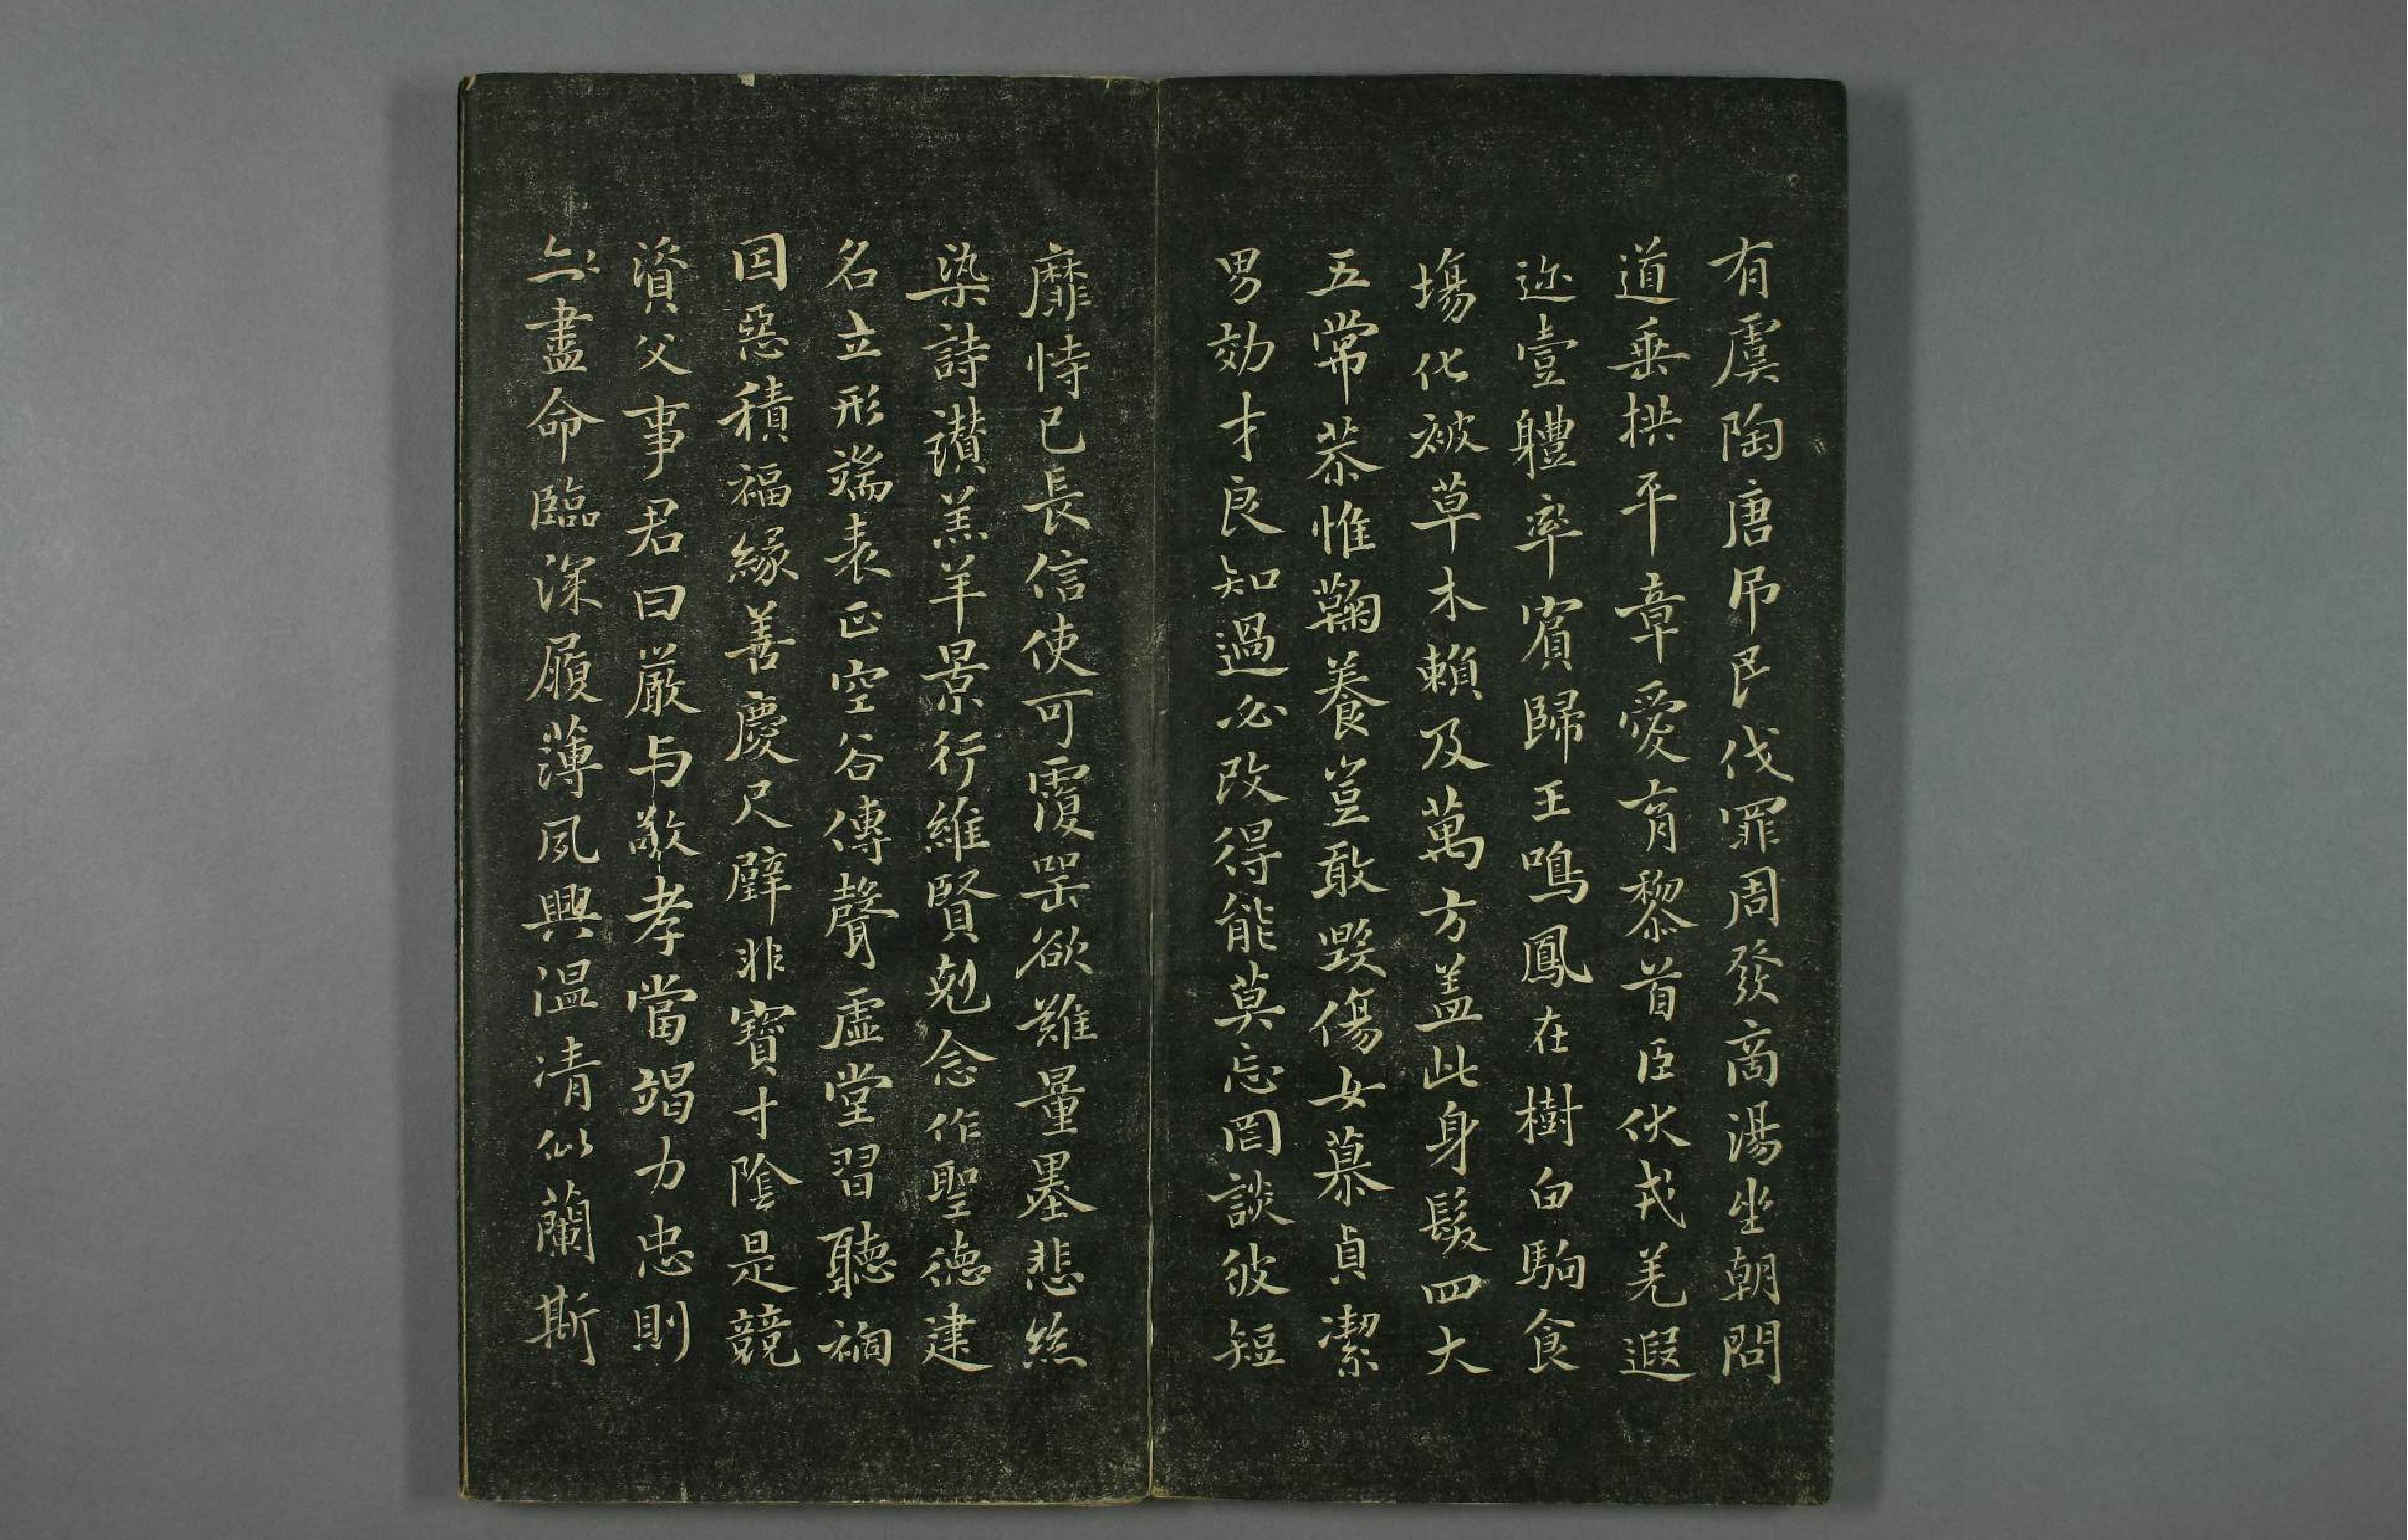 有虞陶唐吊民伐罪周發商湯坐朝問
道垂拱平章愛育黎首臣伏戎羌遐
迩壹軆率賓歸王鳴鳳在樹白駒食
場化被草木賴及萬方盖此身髮四大
五常恭惟鞠養豈敢毀傷女慕貞潔
男効才良知過必改得能莫忘罔談彼短
靡恃己長信使可覆器欲難量墨悲絲
染詩讃羔羊景行維賢剋念作聖德建
名立形端表正空谷傳聲虛堂習聽禍
因惡積福緣善慶尺璧非寶寸陰是競
資父事君曰嚴与敬孝當竭力忠則
盡命臨深履薄夙興温凊似蘭斯